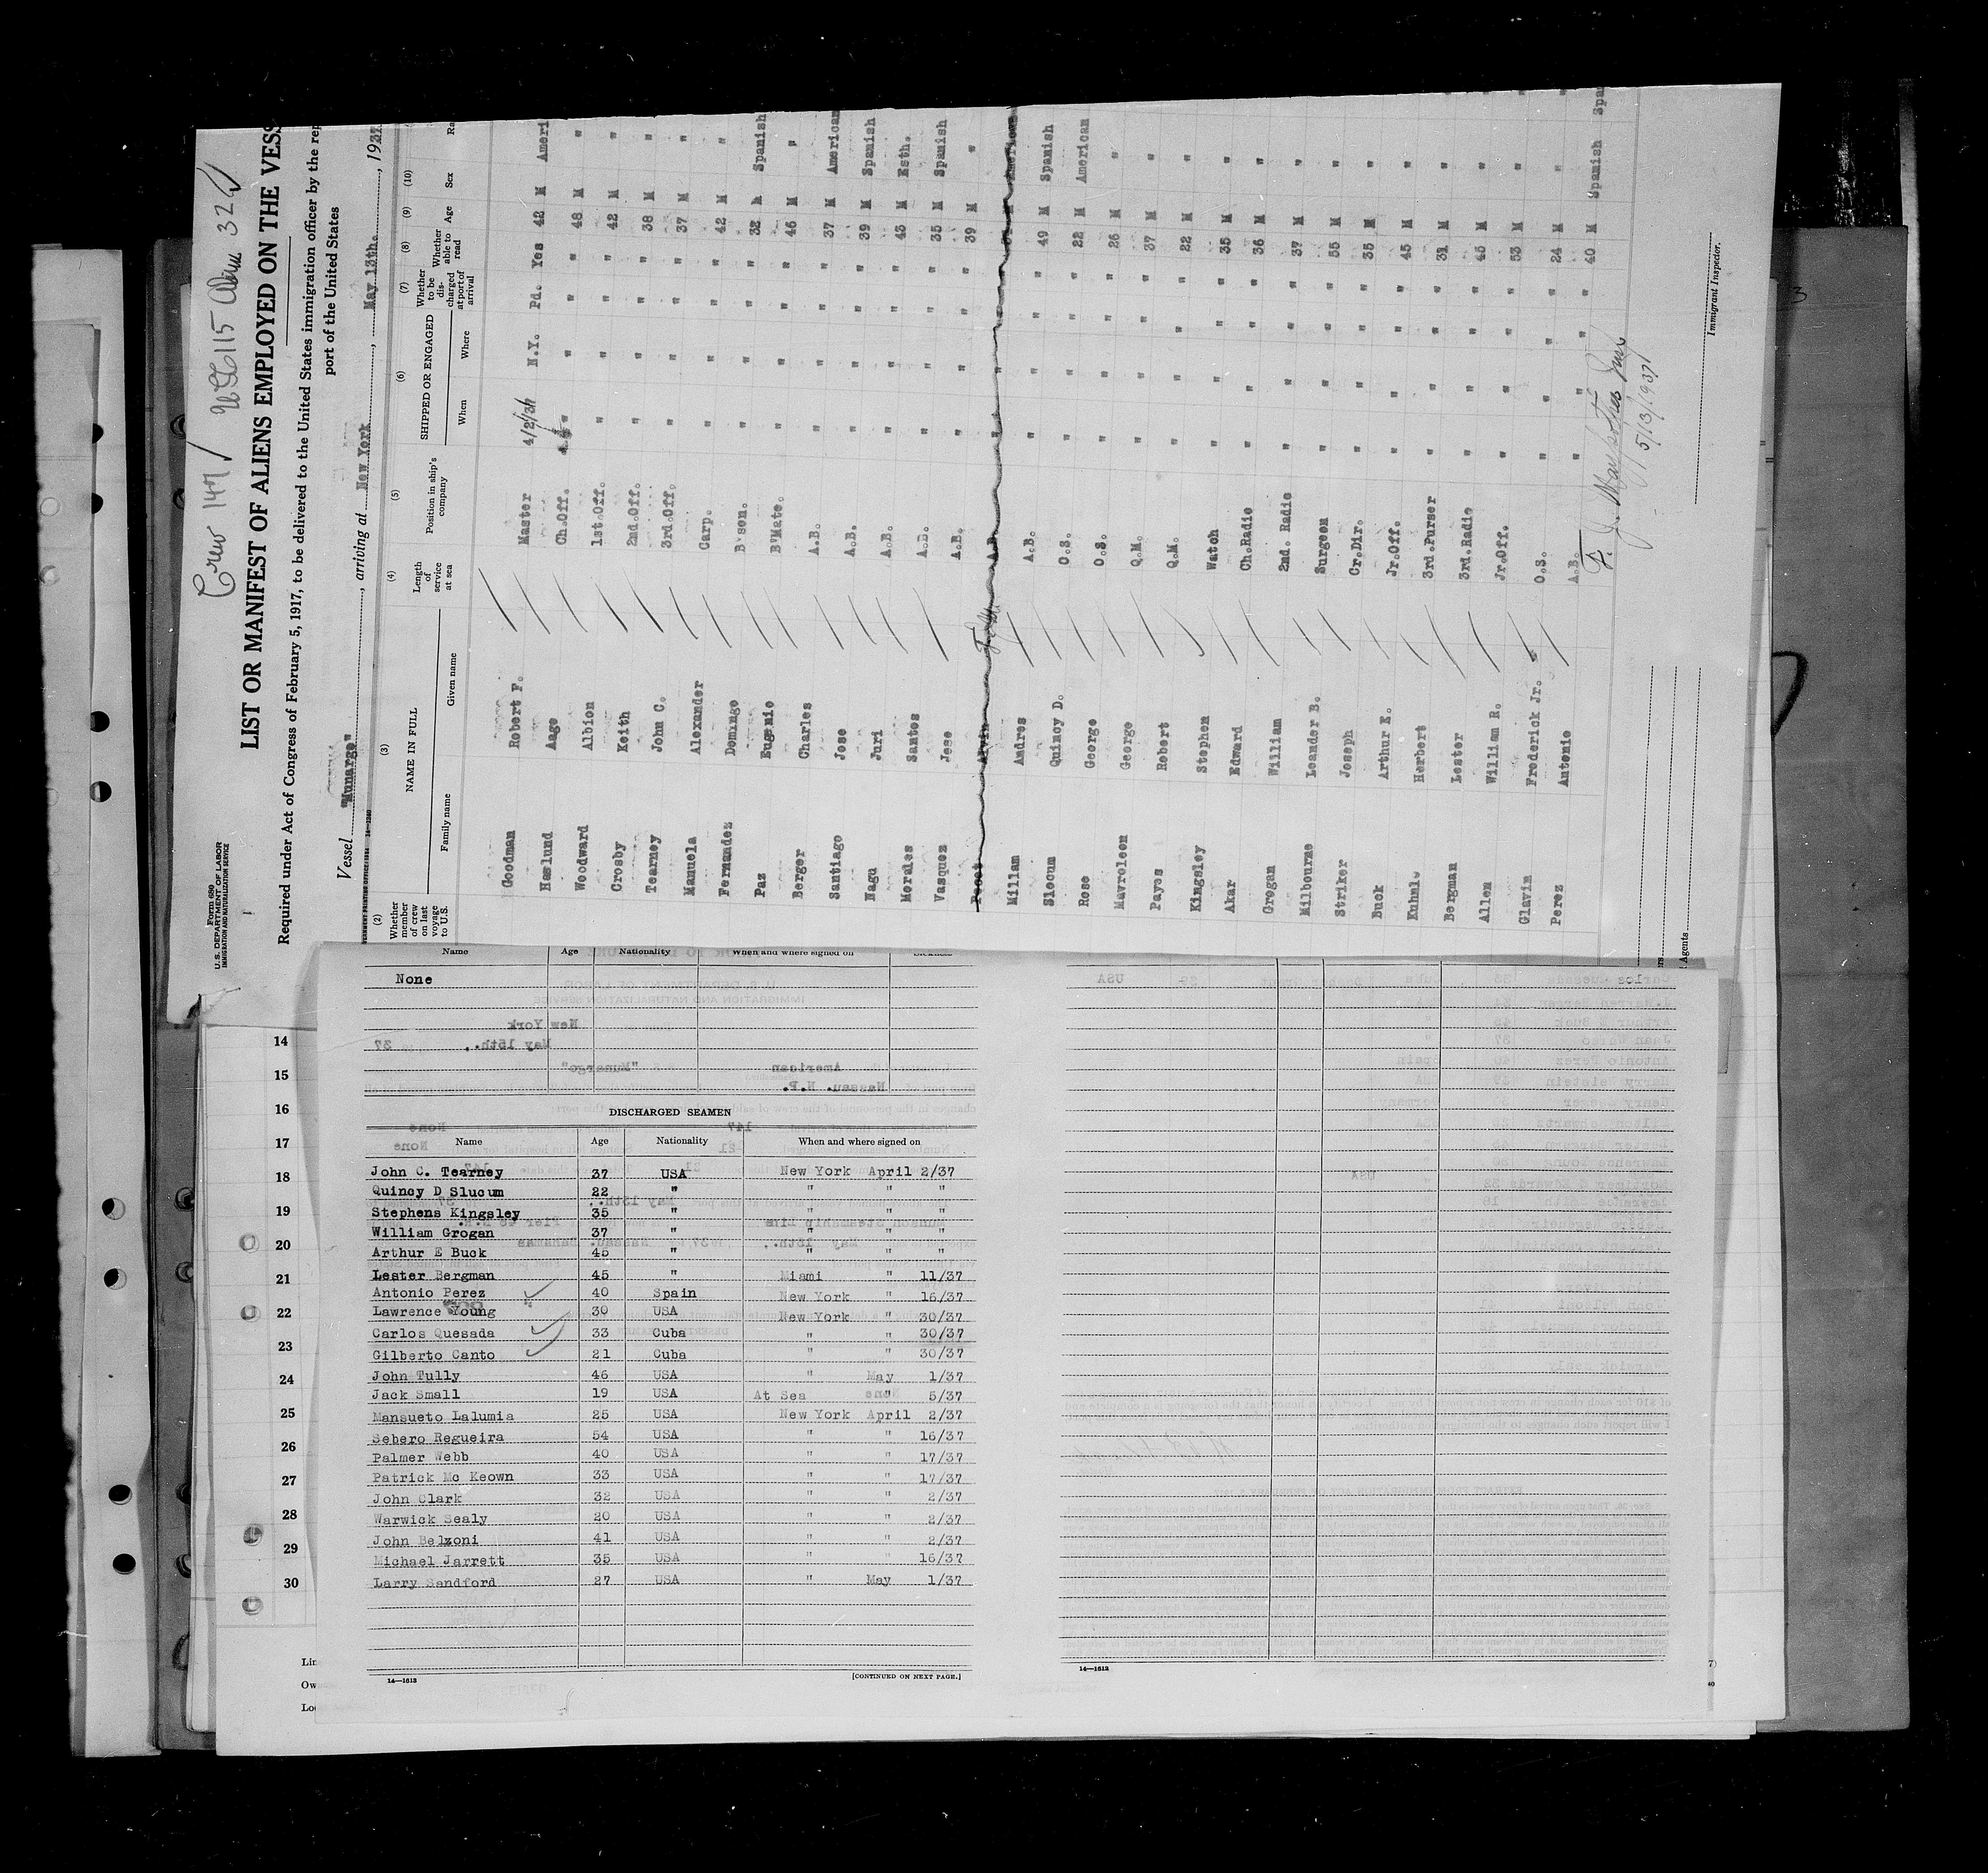 Crew 147
Form 680
U.S. DEPARTMENT OF LABOR
IMMIGRATION AND NATURALIZATION SERVICE
LIST OR MANIFEST OF ALIENS EMPLOYED ON THE VESS
Required under Act of Congress of February 5, 1917, to be delivered to the United States immigration officer by the rep
port of the United States
Vessel "Munargo", arriving at New York, May 13th, 1937
(2) (3) (4) (5) (6) (7) (8) (9) (10)
Whether member of crew on last voyage to U.S. NAME IN FULL Length of service at sea Position in ship's company SHIPPED OR ENGAGED Whether to be discharged at port of arrival Whether able to read Age Sex Ra
Family name Given name When Where
Goodman Robert F. Master 4/2/37 N.Y. Pd. Yes 42 M Ameri
Haslund Aage Ch.Off. " " " " 48 M "
Woodward Albion 1st.Off. " " " " 42 M "
Crosby Keith 2nd.Off. " " " " 38 M "
Tearney John C. 3rd.Off. " " " " 37 M "
Manuela Alexander Carp. " " " " 42 M "
Fernandez Domingo B'sen. " " " " 32 M Spanish
Paz Eugenio B'Mate. " " " " 46 M "
Berger Charles A.B. " " " " 37 M American
Santiago Jose A.B. " " " " 39 M Spanish
Nagu Juri A.B. " " " " 43 M Esth.
Morales Santos A.B. " " " " 35 M Spanish
Vasquez Jose A.B. " " " " 39 M "
Alvin A.B. " " " " M American
Millam Andres A.B. " " " " 49 M Spanish
Slocum Quincy D. O.S. " " " " 22 M American
Rose George O.S. " " " " 26 M "
Mavroleon George Q.M. " " " " 37 M "
Payes Robert Q.M. " " " " 22 M "
Kingsley Stephen Watch " " " " 35 M "
Akar Edward Ch.Radio " " " " 36 M "
Grogan William 2nd. Radio " " " " 37 M "
Milbourne Leander B. Surgeon " " " " 55 M "
Striker Joseph Cr.Dir. " " " " 35 M "
Buck Arthur E. Jr.Off. " " " " 45 M "
Kuhnle Herbert 3rd.Purser " " " " 31 M "
Bergman Lester 3rd.Radio " " " " 45 M "
Allen William R. Jr.Off. " " " " 53 M "
Glavin Frederick Jr. O.S. " " " " 24 M "
Perez Antonio A.B. " " " " 40 M Spanish Spa
5/13/1937
Immigrant Inspector.
Agents
Name Age Nationality When and where signed on Sickness
None
DISCHARGED SEAMEN
Name Age Nationality When and where signed on
John C. Tearney 37 USA New York April 2/37
Quincy D Slucum 22 " " " "
Stephens Kingsley 35 " " " "
William Grogan 37 " " " "
Arthur E Buck 45 " " " "
Lester Bergman 45 " Miami " 11/37
Antonio Perez 40 Spain New York " 16/37
Lawrence Young 30 USA New York " 30/37
Carlos Quesada 33 Cuba " " 30/37
Gilberto Canto 21 Cuba " " 30/37
John Tully 46 USA " May 1/37
Jack Small 19 USA At Sea " 5/37
Mansueto Lalumia 25 USA New York April 2/37
Sebero Regueira 54 USA " " 16/37
Palmer Webb 40 USA " " 17/37
Patrick Mc Keown 33 USA " " 17/37
John Clark 32 USA " " 2/37
Warwick Sealy 20 USA " " 2/37
John Belzoni 41 USA " " 2/37
Michael Jarrett 35 USA " " 16/37
Larry Sandford 27 USA " May 1/37
14—1613
[CONTINUED ON NEXT PAGE.]
14—1613
14
15
16
17
18
19
20
21
22
23
24
25
26
27
28
29
30